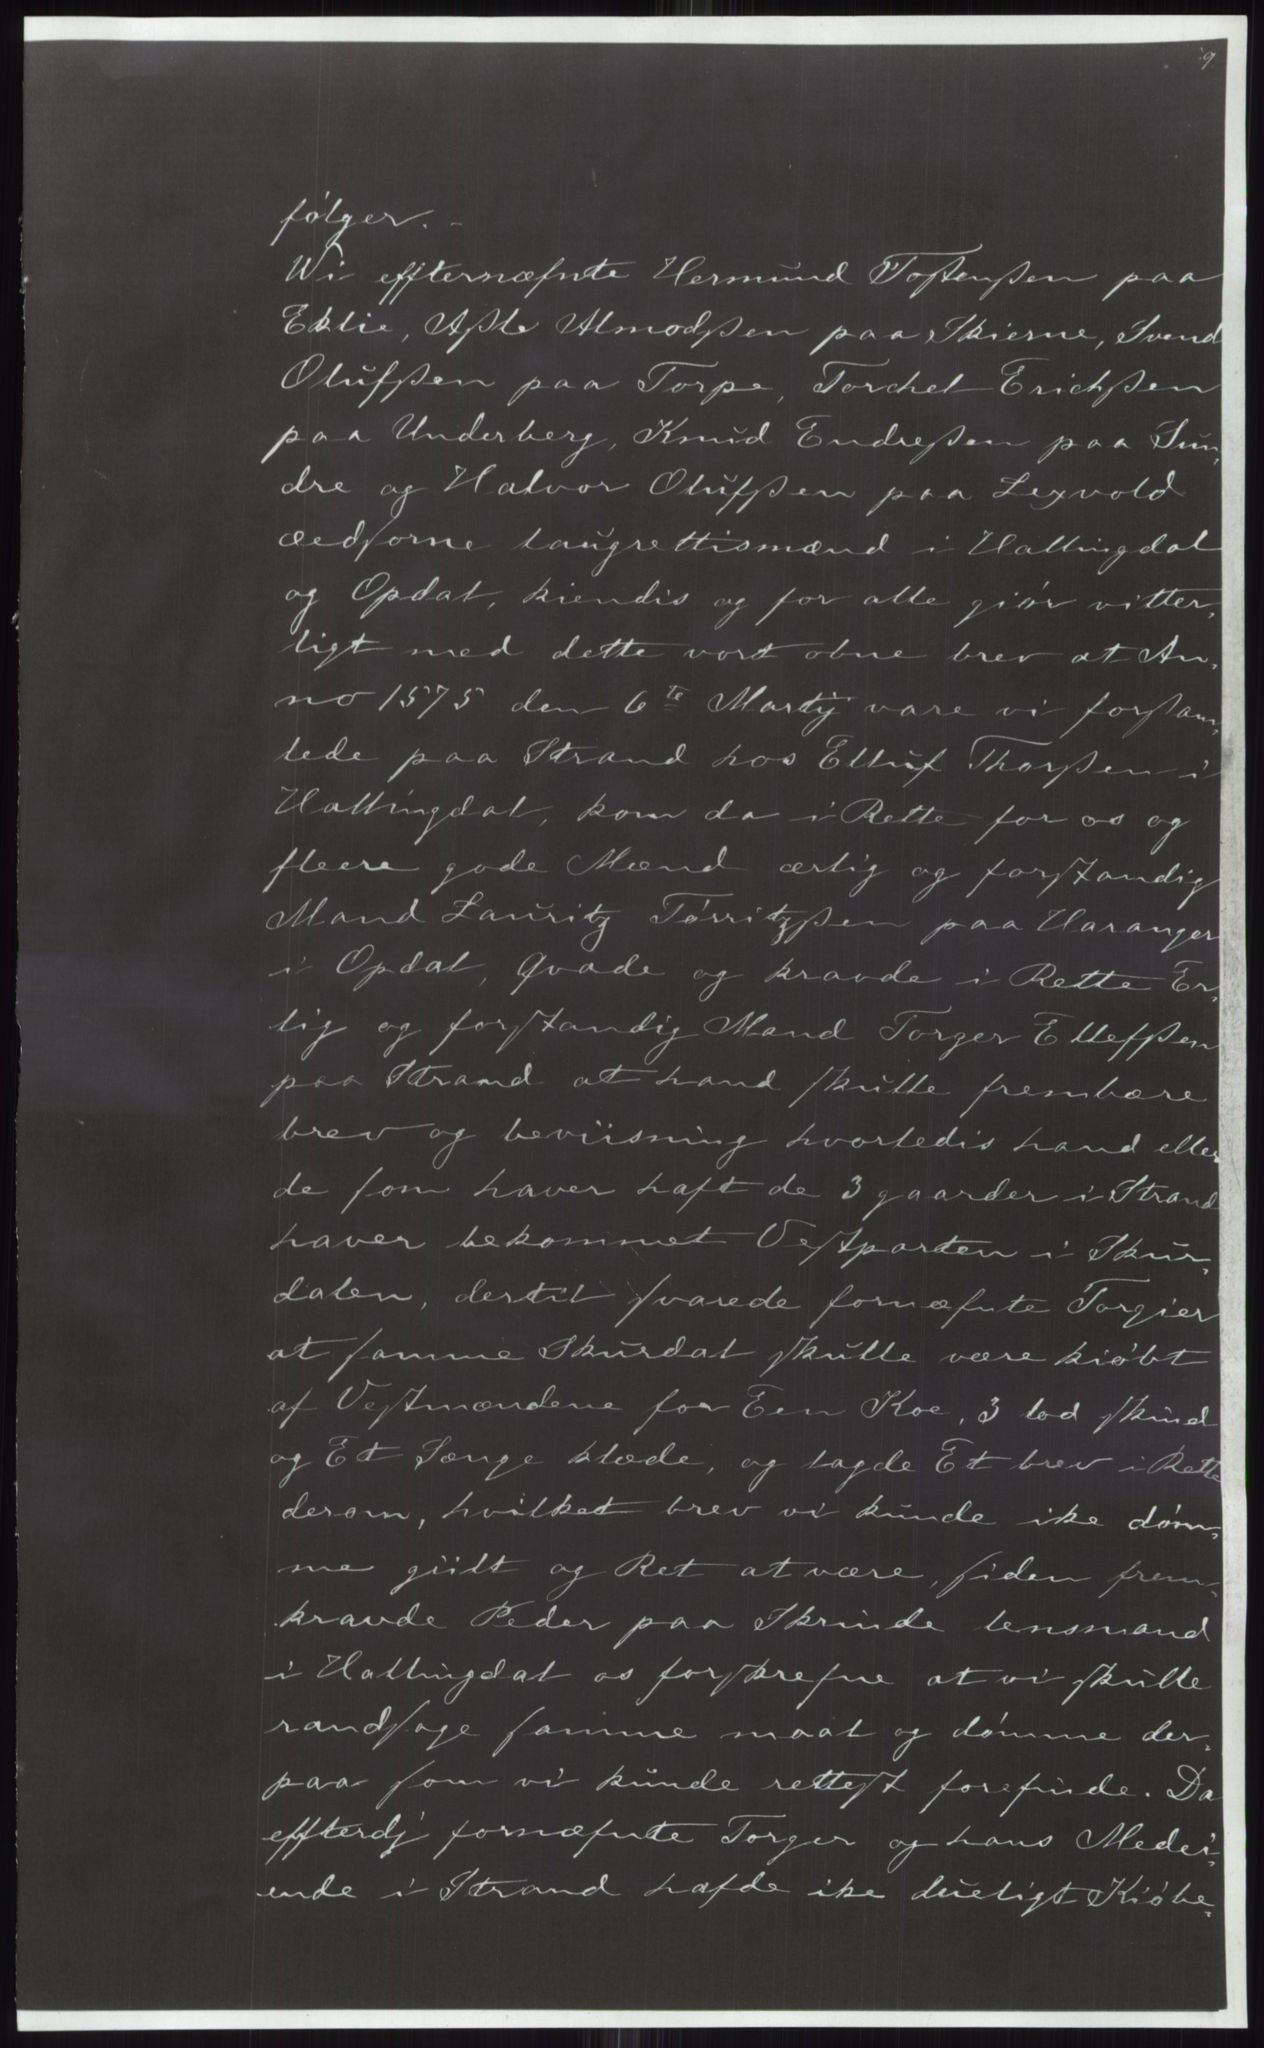 9
følger. -
Wi effternæfnte Hermund Tostenßen paa
Eklie, Aßle Almodßen paa Skierne, Svend
Olufßen paa Torpe, Torchel Erichßen
paa Underberg, Knud Endreßen paa Sun,
dre og Halvor Olufßen paa Lexvold
ædsorne laugrettismænd i Hallingdal
og Opdal, kiendis og for alle giør vitter,
ligt med dette vort obne brev at An,
no 1575 den 6te Martij vare vi forsam,
lede paa Strand hos Elluf Thorßen i
Hallingdal, kom da i Rette for os og
fleere gode Mænd ærlig og forstandig
Mand Lauritz Tørritzßen paa Haranger
i Opdal, Qvade og kravde i Rette Er,
lig og forstandig Mand Torger Ellefßen
paa Strand at hand skulle frembære
brev og beviisning hvorledis hand eller
de som haver haft de 3 gaarder i Strand
haver bekommet Vestparten i Skur,
dalen, dertil svarede fornæfnte Torgier
at samme Skurdal skulle være kiøbt
af Vestmændene for Een Koe, 3 lod skind
og Et Senge klæde, og lagde Et brev i Rette
derom, hvilket brev vi kunde ike døm,
me giildt og Ret at være, siden frem,
kravde Peder paa Skrinde lensmand
i Hallingdal os forskrefne at vi skulle
randsage samme maal og dømme der,
paa som vi kunde rettest forefinde. Da
effterdj fornæfnte Torger og hans Medei,
ende i Strand hafde ike dueligt Kiøbe,